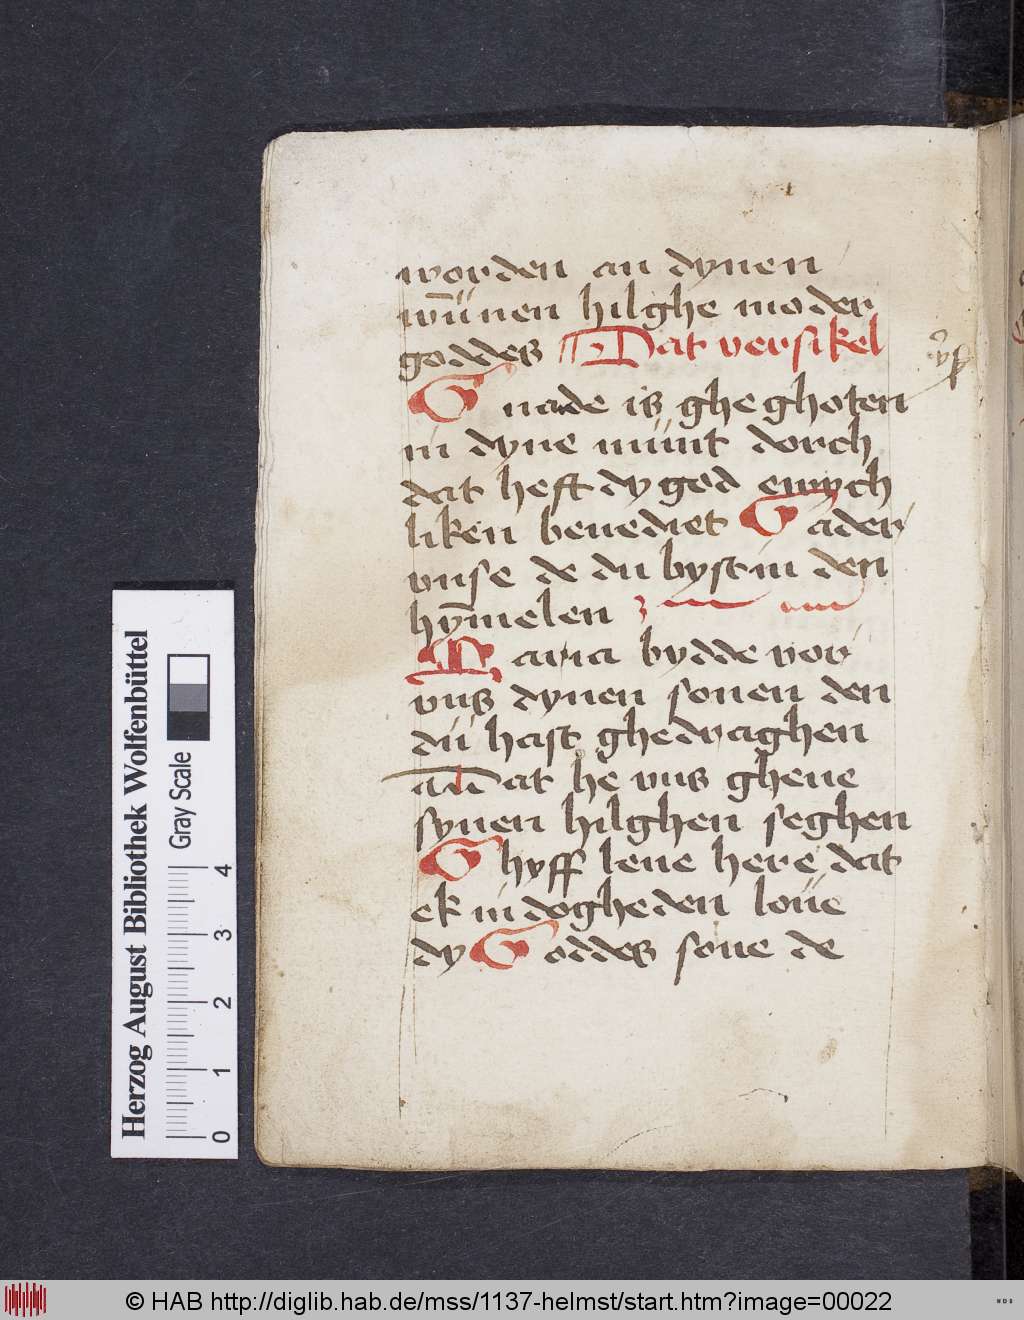 worden an dynen
wūnen hilghe moder
goddes Dat versikel
Gnade is ghe ghoten
in dyne munt dorch
dat heft dy god ewych
liken benediet Vader
vnse de du byst in den
hȳmelen
Maria bydde vor
vns dynen sonen den
dü hast ghedraghen
dat he vns gheue
synen hilghen seghen
Ghyff leue here dat
ek in dogheden loüe
dy Goddes sone de
Herzog August Bibliothek Wolfenbüttel
Gray Scale
0 1 2 3 4
© HAB http://diglib.hab.de/mss/1137-helmst/start.htm?image=00022